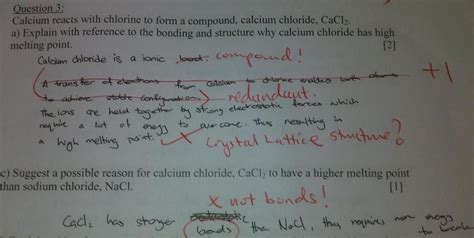 Question 3:
Calcium reacts with chlorine to form a compound, calcium chloride, CaCl₂.
a) Explain with reference to the bonding and structure why calcium chloride has high
melting point. [2]
Calcium chloride is a ionic bond. compound!
A transfer of electrons from calcium to chlorine enables both atoms +1
to achieve stable configuration. redundant.
The ions are held together by strong electrostatic forces which
require a lot of energy to overcome. Thus resulting in
a high melting point. Crystal Lattice structure?
c) Suggest a possible reason for calcium chloride, CaCl₂ to have a higher melting point
than sodium chloride, NaCl. [1]
x not bonds!
CaCl₂ has stronger bonds than NaCl, thus requires more energy
to break